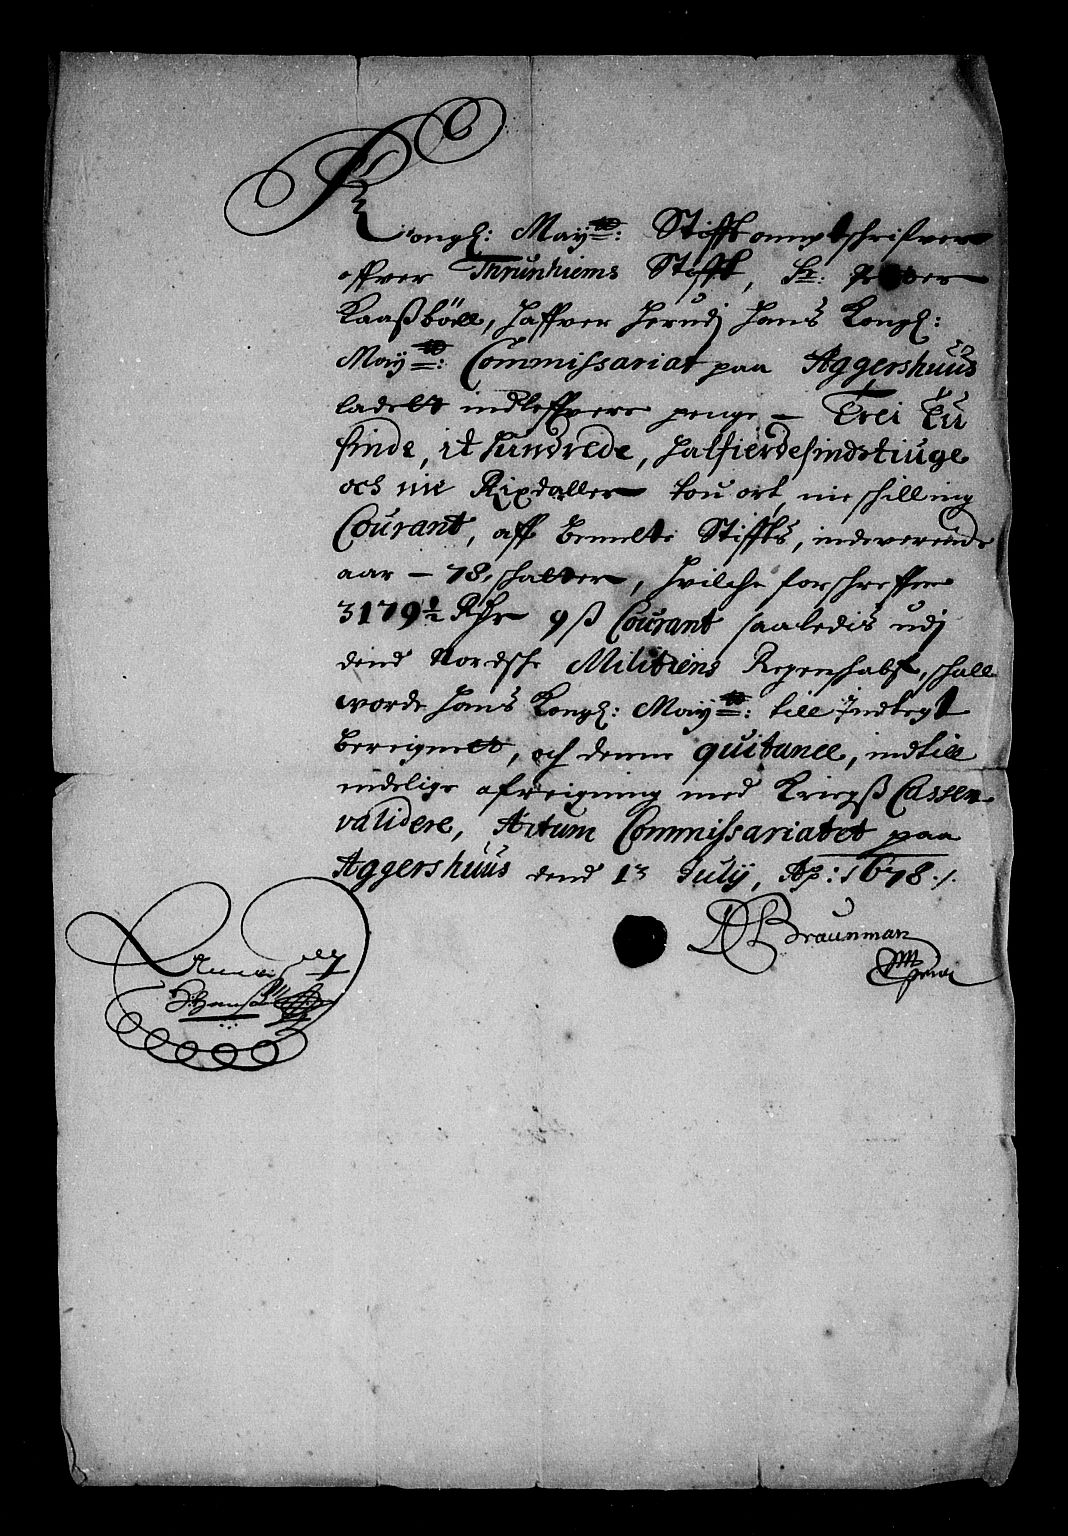 Kongl: May:tt: Stifftamptschrifver
offver Thrunhiems Stifft, Sr: Peder
Kaaßböll, haffver herudj Hans Kongl:
May:tt: Commissariat paa Aggershuus
ladett indleffvere penge – Trei Tu
sinde, it hundrede, halfierdesindstiuge
och nie Rixdaller tou ort, nie schilling
Courant, aff bemelte Stiffts, indeverende
aar – 78, schatter, hvilche forschreffne
3179½ Rdr 9 ß Courant saaledis udj
dend Nordsche Militiens Regenschabs, schall
worde Hans Kongl: May:tt: till Indtegt
bereignett, och denne quitance, indtill
endelige afreigning med Kriegß Cassen
validere, Actum Commissariatet paa
Aggershuus dend 13 July, Ao: 1678 ./.
DBraunman
Hansen